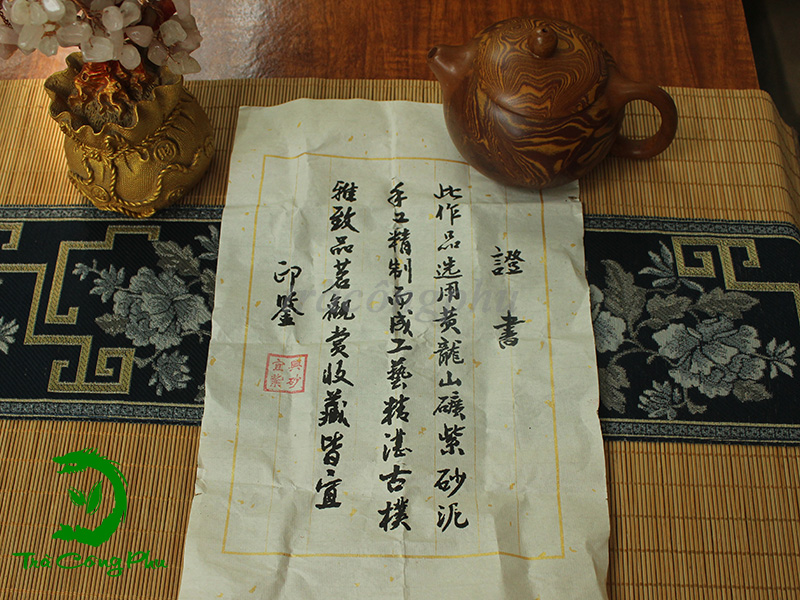 證書
此作品选用黄龍山礦紫砂泥
手工精制而成工藝精湛古樸
雅致品茗觀赏收藏皆宜
印鑒
宜興紫砂
trà công phu
Trà Công Phu